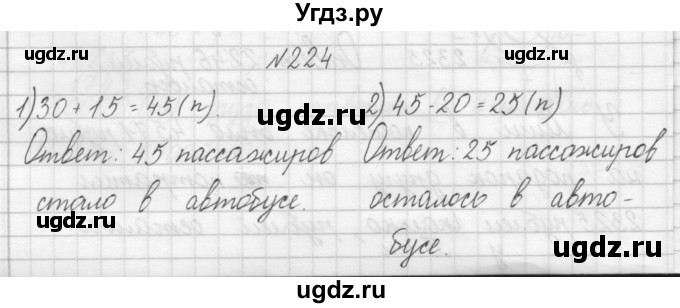 Угдз.ру
ugdz.ru ugdz.ru
№224
ugdz.ru
1) 30 + 15 = 45 (п).
Ответ: 45 пассажиров
стало в автобусе.
2) 45 - 20 = 25 (п)
Ответ: 25 пассажиров
осталось в авто-
бусе.
ugdz.ru ugdz.ru
ugdz.ru
ugdz.ru ugdz.ru